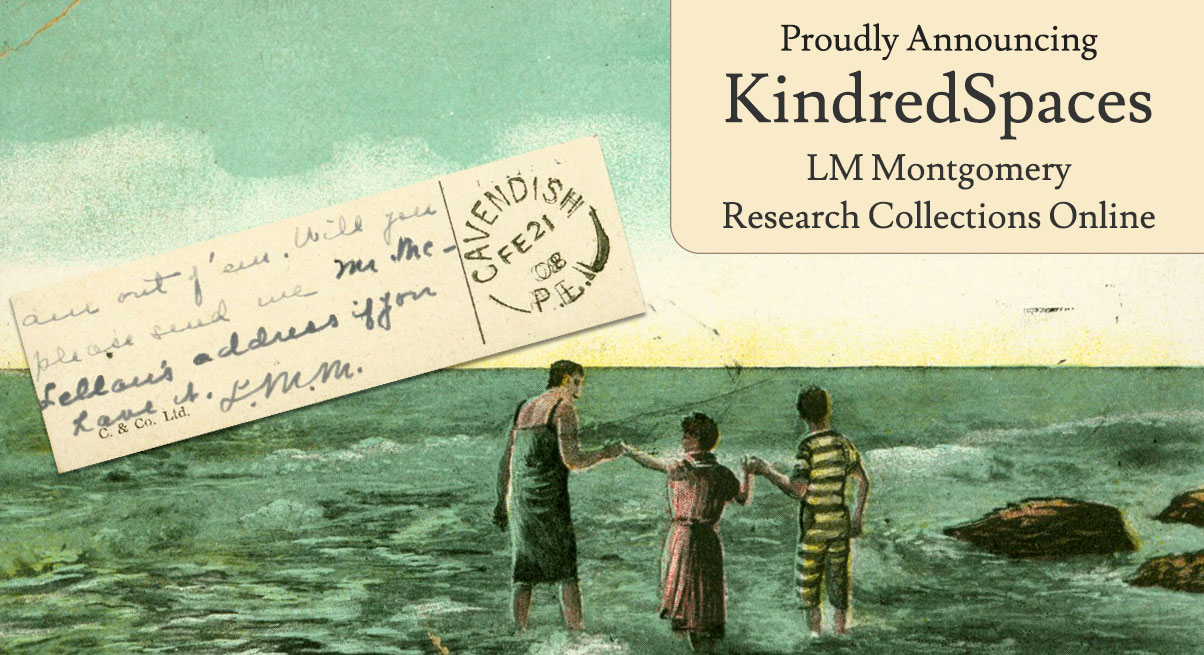 Proudly Announcing
KindredSpaces
LM Montgomery
Research Collections Online
am out of 'em. Will you
please send me Mr. Mc-
Lellan's address if you
have it. L.M.M.
C. & Co. Ltd.
CAVENDISH
FE 21
08
P.E.I.